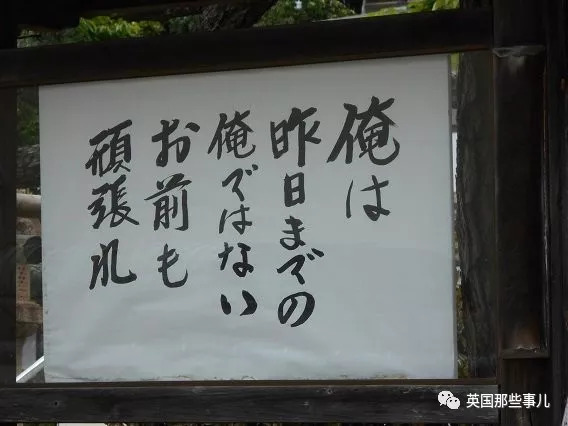 俺は
昨日までの
俺ではない
お前も
頑張れ
英国那些事儿